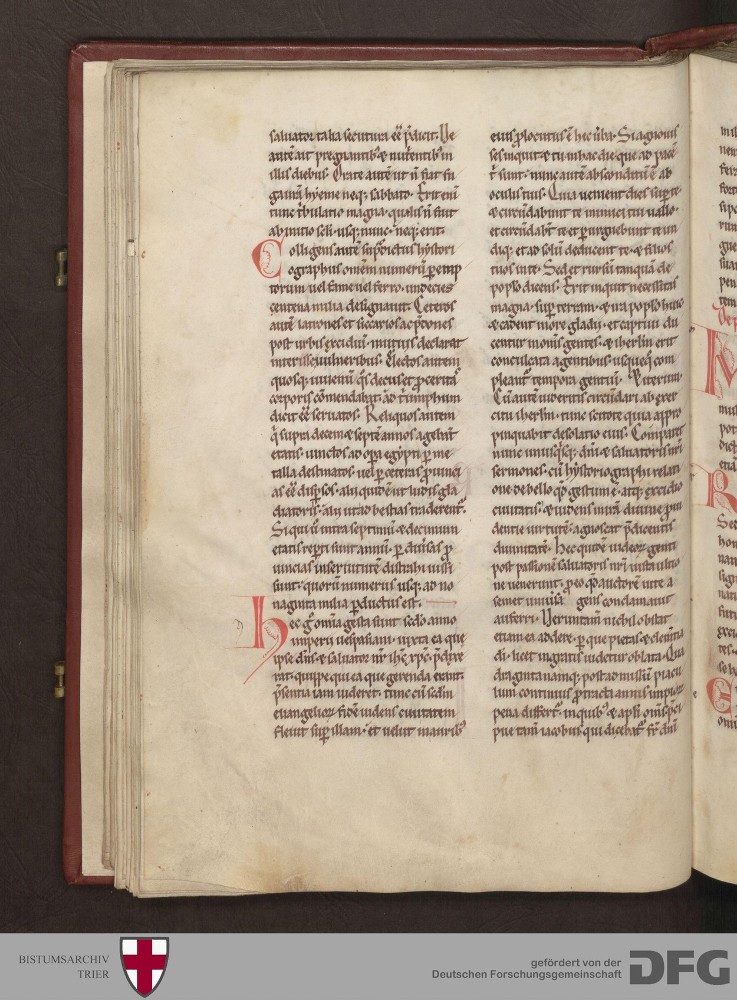 saluator talia secutura eē p̄dicit. Ve
autē ait pregnantib; & nutrientib; in
illis diebus. Orate autē ut n̄ fiat fu
ga ur̄a hyeme neq; sabbato. Erit eni
tunc tribulatio magna. qualis n̄ fuit
ab initio scli. usq; nunc. neq; erit.
Colligens autē supͣdictus hystori
ographus omēm numerū ꝑemp
torum uel fame uel ferro. undecies
centena milia designauit. Ceteros
autē latrones et siccarios ac p̄dones
post urbis excidiū. mutuis declarat
interisse uulneribus. Electos autem
quosq; iuuenū. q̄s decus et ꝓceritas
corporis cōmendabat. ad triumphum
dicit eē seruatos. Reliquos autem
q̄ supra decem & septē annos agebant
etatis. uinctos ad opa egypti ꝑ me
talla destinatos. uel ꝑ ceteras ꝓuinci
as eē dispsos. alii quidē ut ludis gla
diatoris. alii ut ad bestias traderent.
Si qui ū intra septimū & decimum
etatis repti sunt annū. ꝑ diuersas ꝓ
uincias in seruitutē distrahi iussi
sunt. quorū numerus usq; ad no
naginta milia ꝑductus est.
Hec gͦ omia gesta sunt scdo anno
imperii uespasiani. iuxta ea que
ipse dn̄s & saluator nr̄ ihc xpc p̄dixe
rat. quippe qui ea que gerenda erant.
p̄sentia iam uideret. tunc cū scdm
euangelior fidē uidens ciuitatem
fleuit sup illam. et uelut in aurib;
eius ꝓlocutus ē hec uba. Si agnouis
ses inquit & tu in hac die que ad pacē
t̄ sunt. nunc autē abscondita ē ab
oculis tuis. Quia uenient dies sup te.
& circūdabunt te inimici tui uallo.
et circūdabt te et ꝑurguebunt te un
diq; et ad solū deducent te. & filios
tuos in te. Sed et rursū tanquā de
poplo dicens. Erit inquit necessitas
magna. sup terram. & ira poplo huic
& cadent in ore gladii. et captiui du
centur in omīs gentes. & ihrlm erit
conculcata a gentibus. usquequo com
pleantur tempora gentiū. Et iterum.
Cū autē uideritis circūdari ab exer
citu ihrlm. tunc scitote quia appro
pinquabit desolatio eius. Comparet
nunc unusq̄sq; dn̄i & saluatoris nr̄i
sermones. cū hystoriographi relati
one de bello qd gestum ē. atq; excidio
ciuitatis. & uidens mirā diuine ꝓui
dentie uirtutē. agnoscat p̄dicentis
diuinitatē. Hec quidē iudeor genti
post passionē saluatoris nr̄i iusta ultio
ne uenerunt. ꝓ eo qd auctorē uite a
semet uniuersa gens conclamauit
auferri. Veruntam nichil obstat
etiam ea addere. ꝑ que pietas & clemtia
di. licet ingratis uidetur oblata. Qua
draginta namq; post admissū piacu
lum continuis ꝓtracta annis impior
pena differt. in quib; & apli omīs. p̄ci
pue tam iacobus qui dicebat fr̄ dn̄i
BISTUMSARCHIV
TRIER
gefördert von der
Deutschen Forschungsgemeinschaft
DFG